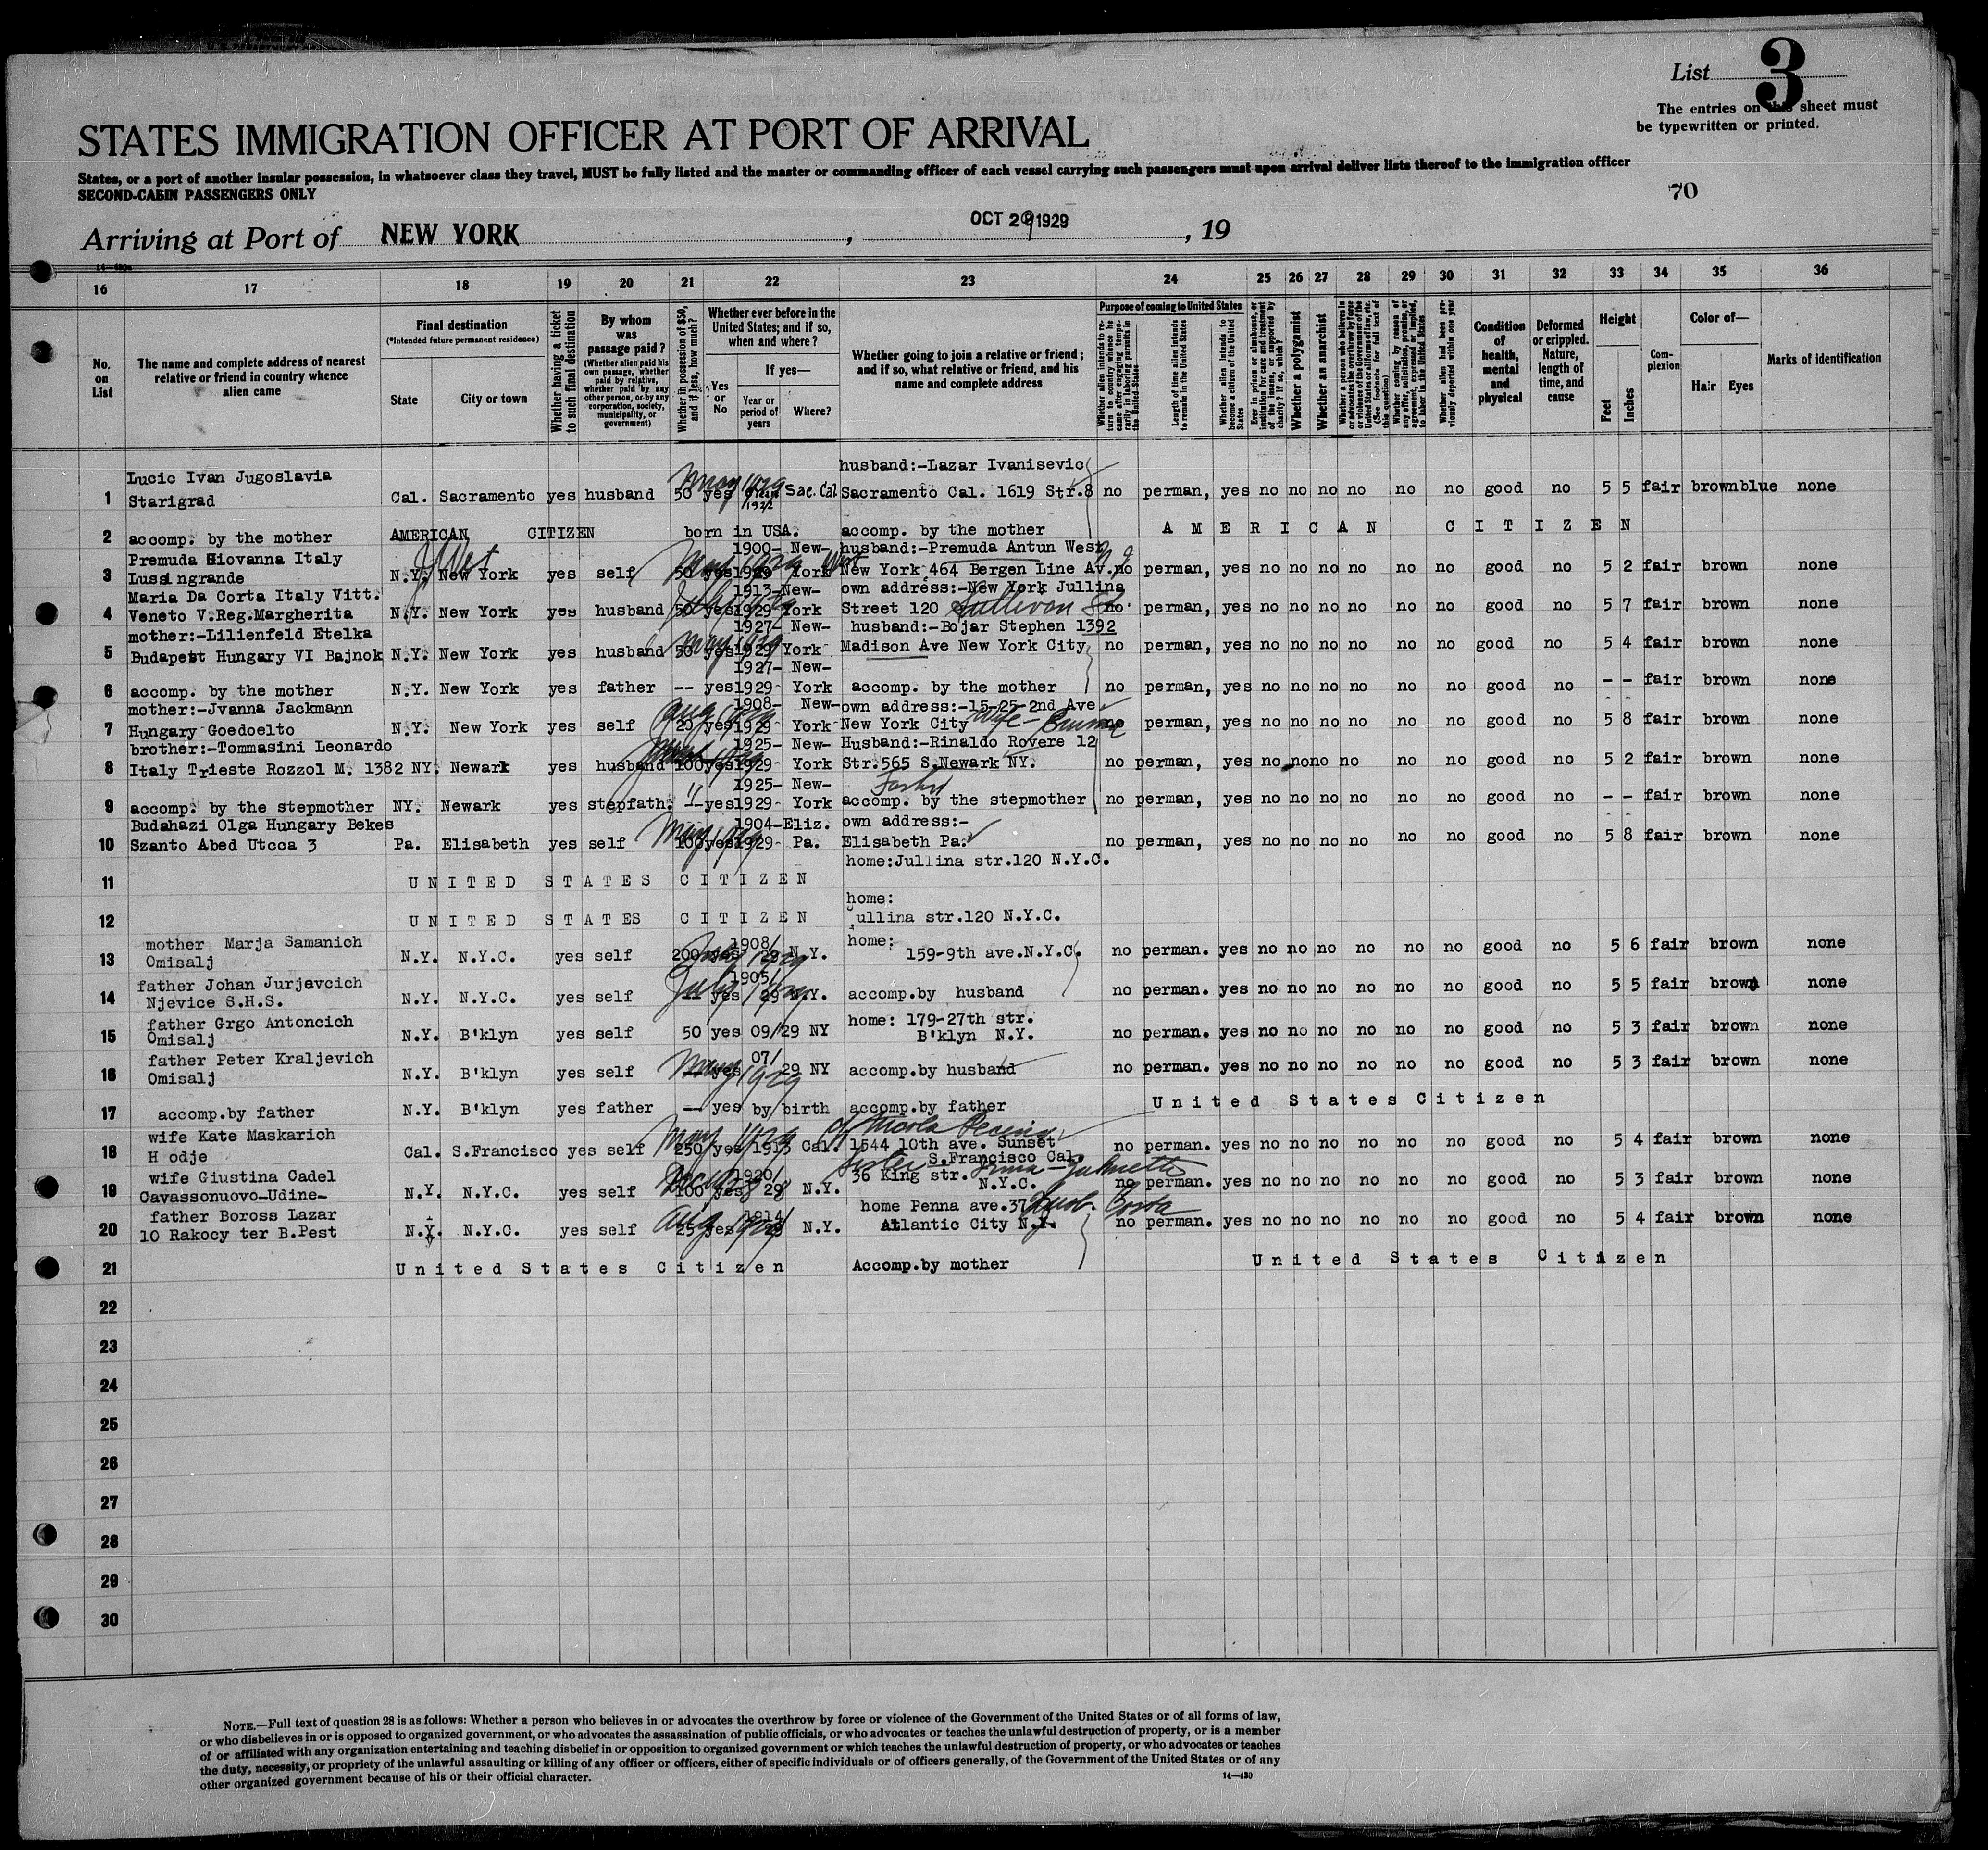 List 3
The entries on this sheet must
be typewritten or printed.
STATES IMMIGRATION OFFICER AT PORT OF ARRIVAL
States, or a port of another insular possession, in whatsoever class they travel, MUST be fully listed and the master or commanding officer of each vessel carrying such passengers must upon arrival deliver lists thereof to the immigration officer
SECOND-CABIN PASSENGERS ONLY
70
Arriving at Port of NEW YORK , OCT 29 1929 , 19
14-480a
16 17 18 19 20 21 22 23 24 25 26 27 28 29 30 31 32 33 34 35 36
No. on List
The name and complete address of nearest relative or friend in country whence alien came
Final destination
(*Intended future permanent residence)
State City or town
Whether having a ticket to such final destination
By whom was passage paid?
(Whether alien paid his own passage, whether paid by relative, whether paid by any other person, or by any corporation, society, municipality, or government)
Whether in possession of $50, and if less, how much?
Whether ever before in the United States; and if so, when and where?
Yes or No
If yes—
Year or period of years
Where?
Whether going to join a relative or friend; and if so, what relative or friend, and his name and complete address
Purpose of coming to United States
Whether alien intends to return to country whence he came after engaging temporarily in laboring pursuits in the United States
Length of time alien intends to remain in the United States
Whether alien intends to become a citizen of the United States
Ever in prison or almshouse, or institution for care and treatment of the insane, or supported by charity? If so, which?
Whether a polygamist
Whether an anarchist
Whether a person who believes in or advocates the overthrow by force or violence of the Government of the United States or all forms of law, etc. (See footnote for full text of this question)
Whether coming by reason of any offer, solicitation, promise, or agreement, expressed or implied, to labor in the United States
Whether alien had been previously deported within one year
Condition of health, mental and physical
Deformed or crippled. Nature, length of time, and cause
Height
Feet Inches
Complexion
Color of—
Hair Eyes
Marks of identification
husband:-Lazar Ivanisevic
Lucic Ivan Jugoslavia
1 Starigrad Cal. Sacramento yes husband 50 yes May 1929 1922 Sac. Cal Sacramento Cal. 1619 Str.8 no perman, yes no no no no no no good no 5 5 fair brown blue none
2 accomp. by the mother AMERICAN CITIZEN born in USA. accomp. by the mother AMERICAN CITIZEN
Premuda Giovanna Italy 1900- New- husband:-Premuda Antun West
3 Lussingrande N.Y. New York yes self 50 yes 1929 York New York 464 Bergen Line Av. no perman, yes no no no no no no good no 5 2 fair brown none
Maria Da Corta Italy Vitt. 1913-New- own address:-New York Jullina
4 Veneto V.Reg.Margherita N.Y. New York yes husband 50 yes 1929 York Street 120 Sullivan St no perman, yes no no no no no no good no 5 7 fair brown none
mother:-Lilienfeld Etelka 1927- New- husband:-Bojar Stephen 1392
5 Budapest Hungary VI Bajnok N.Y. New York yes husband 50 yes May 1929 York Madison Ave New York City no perman, yes no no no no no no good no 5 4 fair brown none
1927- New-
6 accomp. by the mother N.Y. New York yes father -- yes 1929- York accomp. by the mother no perman, yes no no no no no no good no - - fair brown none
mother:-Jvanna Jackmann 1908- New- own address:-15-25-2nd Ave
7 Hungary Goedoelto N.Y. New York yes self 20 yes Aug 1929 York New York City wife- no perman, yes no no no no no no good no 5 8 fair brown none
brother:-Tommasini Leonardo 1925- New- Husband:-Rinaldo Rovere 12
8 Italy Trieste Rozzol M. 1382 NY. Newark yes husband 100 yes 1929- York Str.565 S.Newark NY. no perman, yes no no no no no no good no 5 2 fair brown none
1925- New- Father
9 accomp. by the stepmother NY. Newark yes stepfath. " -- yes 1929- York accomp. by the stepmother no perman, yes no no no no no no good no - - fair brown none
Budahazi Olga Hungary Bekes 1904-Eliz. own address:-
10 Szanto Abed Utcca 3 Pa. Elisabeth yes self 100 yes May 1929 1929- Pa. Elisabeth Pa. no perman, yes no no no no no no good no 5 8 fair brown none
home:Jullina str.120 N.Y.C.
11 UNITED STATES CITIZEN
home:
12 UNITED STATES CITIZEN ullina str.120 N.Y.C.
mother Marja Samanich 1908/ home:
13 Omisalj N.Y. N.Y.C. yes self 200 yes 29 N.Y. 159-9th ave.N.Y.C. no perman. yes no no no no no no good no 5 6 fair brown none
father Johan Jurjevcich 1905/
14 Njevice S.H.S. N.Y. N.Y.C. yes self -- yes July 1929 29 N.Y. accomp.by husband no perman. yes no no no no no no good no 5 5 fair brown none
father Grgo Antoncich home: 179-27th str.
15 Omisalj N.Y. B'klyn yes self 50 yes 09/29 NY B'klyn N.Y. no perman. yes no no no no no no good no 5 3 fair brown none
father Peter Kraljevich 07/
16 Omisalj N.Y. B'klyn yes self -- yes May 1929 29 NY accomp.by husband no perman. yes no no no no no no good no 5 3 fair brown none
17 accomp.by father N.Y. B'klyn yes father -- yes by birth accomp.by father United States Citizen
wife Kate Maskarich
18 H odje Cal. S.Francisco yes self 250 yes May 1929 1913 Cal. 1544 10th ave. Sunset S.Francisco Cal. no perman. yes no no no no no no good no 5 4 fair brown none
wife Giustina Cadel 1920/ sister 36 King str.
19 Cavassonuovo-Udine- N.Y. N.Y.C. yes self 100 yes 29 N.Y. N.Y.C. no perman. yes no no no no no no good no 5 3 fair brown none
father Boross Lazar 1914/ home Penna ave.37
20 10 Rakocy ter B.Pest N.Y. N.Y.C. yes self 25 yes Aug N.Y. Atlantic City N.Y. no perman. yes no no no no no no good no 5 4 fair brown none
21 United States Citizen Accomp.by mother United States Citizen
22
23
24
25
26
27
28
29
30
NOTE.—Full text of question 28 is as follows: Whether a person who believes in or advocates the overthrow by force or violence of the Government of the United States or of all forms of law,
or who disbelieves in or is opposed to organized government, or who advocates the assassination of public officials, or who advocates or teaches the unlawful destruction of property, or is a member
of or affiliated with any organization entertaining and teaching disbelief in or opposition to organized government or which teaches the unlawful destruction of property, or who advocates or teaches
the duty, necessity, or propriety of the unlawful assaulting or killing of any officer or officers, either of specific individuals or of officers generally, of the Government of the United States or of any
other organized government because of his or their official character.
14-480